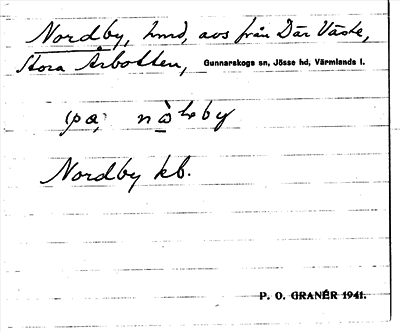 Nordby, hmd, avs från Där Väste,
Stora Årbotten, Gunnarskogs sn, Jösse hd, Värmlands l.
på,
Nordby kb.
P. O. GRANÉR 1941.